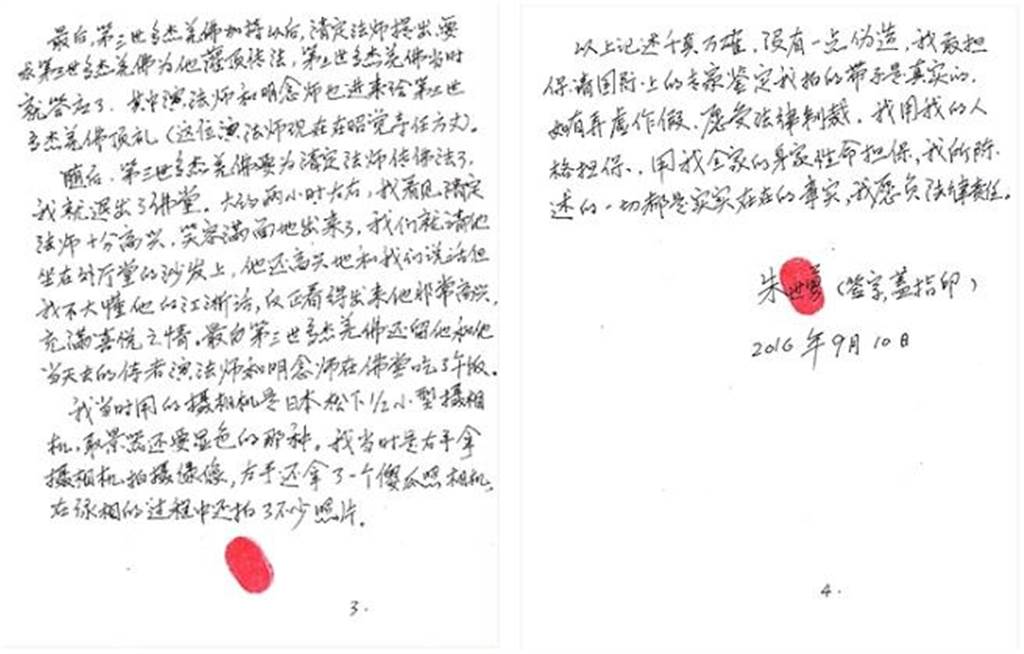 最后,第三世多杰羌佛加持以后,清定法师提出要
求第三世多杰羌佛为他灌顶传法,第三世多杰羌佛当时
就答应了.其中演法师和明念师也进来给第三世
多杰羌佛顶礼(这位演法师现在在昭觉寺任方丈)。
随后,第三世多杰羌佛要为清定法师传佛法了,
我就退出了佛堂。大约两小时左右,我看见清定
法师十分高兴,笑容满面地出来了,我们就请他
坐在外厅堂的沙发上,他还高兴地和我们说话但
我不大懂他的江浙话,反正看得出来他非常高兴,
充满喜悦之情。最后第三世多杰羌佛还留他和他
当天去的侍者演法师和明念师在佛堂吃了午饭。
我当时用的摄相机是日本松下1/2小型摄相
机,取景器还要显色的那种。我当时是右手拿
摄相机拍摄录像,左手还拿了一个傻瓜照相机,
在录相的过程中还拍了不少照片。
3.
以上记述千真万确,没有一点伪造,我敢担
保请国际上的专家鉴定我拍的带子是真实的,
如有弄虚作假,愿受法律制裁。我用我的人
格担保,用我全家的身家性命担保,我所陈
述的一切都是实实在在的事实,我愿负法律责任。
朱世勇(签字,盖指印)
2016年9月10日
4.